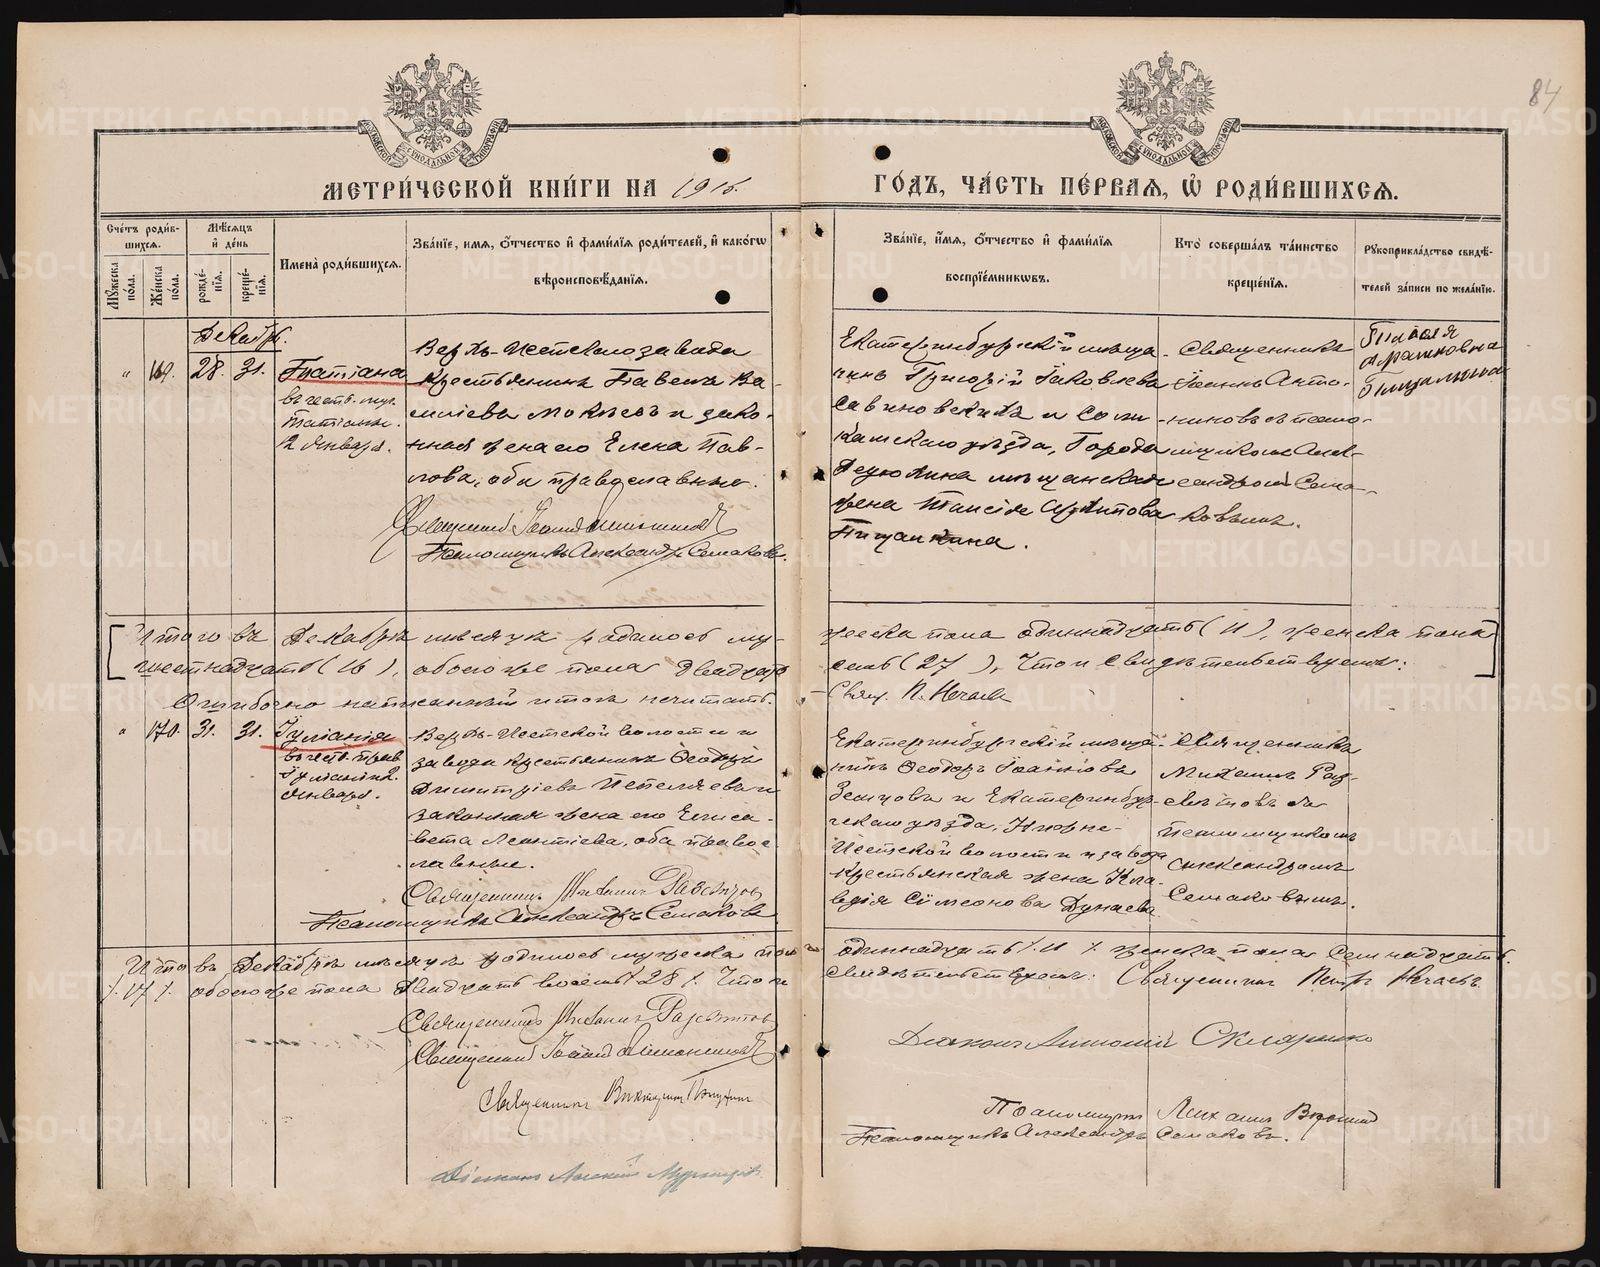 84
МЕТРИ́ЧЕСКОЙ КНИ́ГИ НА 1916.
ГО́ДЪ, ЧА́СТЬ ПЕ́РВАЯ, Ѡ҆ РОДИ́ВШИХСЯ.
Сче́тъ роди́в-
шихся.
Мꙋ́жеска по́ла.
Же́нска по́ла.
Мѣ́сяцъ и҆ де́нь
рожде́-
нїя.
креще́-
нїя.
Имена̀ роди́вшихся.
Зва́нїе, имя, о҆́тчество и҆ фами́лїя роди́телей, и҆ како́гѡ
вѣроисповѣ́данїя.
Зва́нїе, и҆́мя, о҆́тчество и҆ фами́лїя
воспрїе́мникѡвъ.
Кто̀ соверша́лъ та́инство
креще́нїя.
Рꙋкоприкла́дство свидѣ́-
телей за́писи по жела́нїю.
Декабрь.
" 169. 28. 31. Татіана
въ честь муч.
Татіаны.
12 Января.
Верхъ-Исетскаго завода
крестьянинъ Павелъ Ва-
силіевъ Мокѣевъ и зако-
нная жена его Елена Пав-
лова, оба православные.
Священникъ Іоаннъ
Псаломщикъ Александръ Семаковъ.
Екатеринбургскій мѣща-
нинъ Григорій Іаковлевъ
и Соли-
камскаго уѣзда, Города
Дедюхина мѣщанская
жена Таисія
Священникъ
Іоаннъ Анто-
ниновъ съ псало-
мщикомъ Алек-
сандромъ Сема-
ковымъ.
Таисія
Итого въ Декабрѣ мѣсяцѣ родилось му-
жеска пола одиннадцать (11), женска пола
шестнадцать (16), обоего же пола двадцать
семь (27), Что и свидѣтельствуемъ:
Ошибочно написанный итогъ не читать.
Свящ. П. Нечаевъ
" 170. 31. 31. Іуліанія
въ честь прав.
Іуліаніи.
Января.
Верхъ-Исетской волости и
завода крестьянинъ Ѳеодоръ
Димитріевъ Пепеляевъ и
законная жена его Елиса-
вета Леонтіева, оба правос-
лавные.
Священникъ Михаилъ Разсвѣтовъ
Псаломщикъ Александръ Семаковъ
Екатеринбургскій мѣща-
нинъ Ѳеодоръ Іоанновъ
Земцовъ и Екатеринбур-
гскаго уѣзда, Нижне-
Исетской волости и завода
крестьянская жена Кла-
вдія Сімеонова Дунаева
Священникъ
Михаилъ Раз-
свѣтовъ съ
псаломщикомъ
Александромъ
Семаковымъ.
Итого въ Декабрѣ мѣсяцѣ родилось мужеска пола
одиннадцать /11/ женска пола семнадцать
/17/. обоего же пола двадцать восемь /28/. Что и
свидѣтельствуемъ: Священникъ Петръ Нечаевъ
Священникъ Михаилъ Разсвѣтовъ
Священникъ Іоаннъ
Священникъ
Діаконъ
Діаконъ Антоній Скляренко
Псаломщикъ Михаилъ
Псаломщикъ Александръ Семаковъ.
METRIKI.GASO-URAL.RU